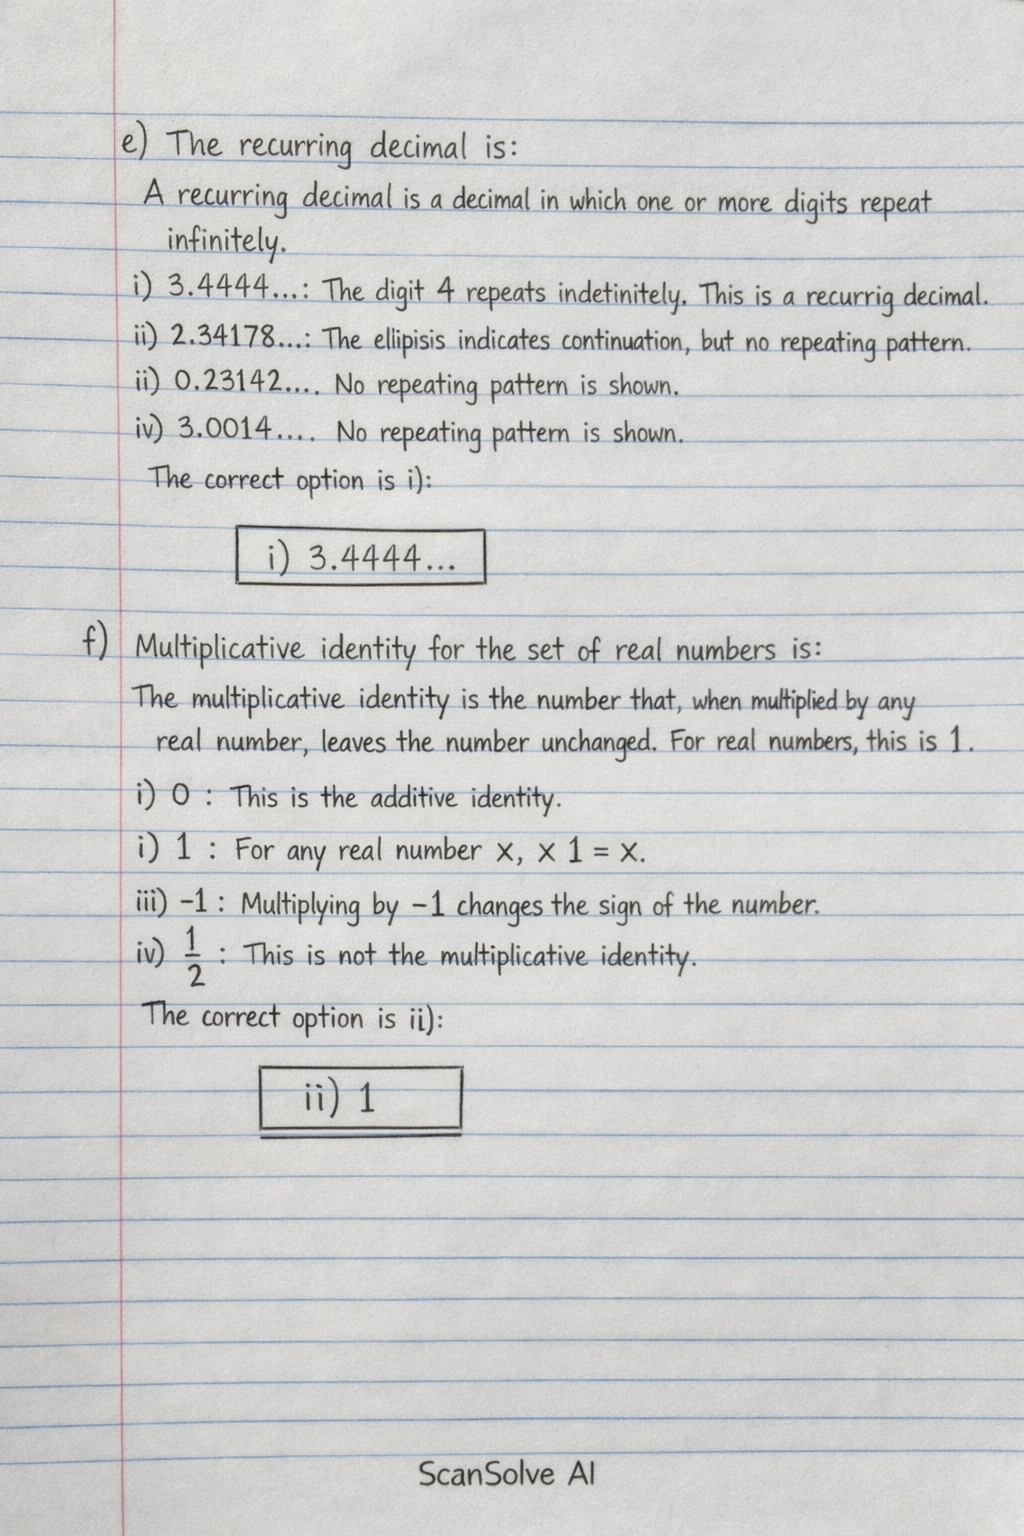 e) The recurring decimal is:
A recurring decimal is a decimal in which one or more digits repeat
infinitely.
i) 3.4444...: The digit 4 repeats indetinitely. This is a recurrig decimal.
ii) 2.34178...: The ellipisis indicates continuation, but no repeating pattern.
ii) 0.23142.... No repeating pattern is shown.
iv) 3.0014.... No repeating pattern is shown.
The correct option is i):
i) 3.4444...
f) Multiplicative identity for the set of real numbers is:
The multiplicative identity is the number that, when multiplied by any
real number, leaves the number unchanged. For real numbers, this is 1.
i) 0 : This is the additive identity.
i) 1 : For any real number x, x 1 = x.
iii) -1 : Multiplying by -1 changes the sign of the number.
iv) 1/2 : This is not the multiplicative identity.
The correct option is ii):
ii) 1
ScanSolve AI